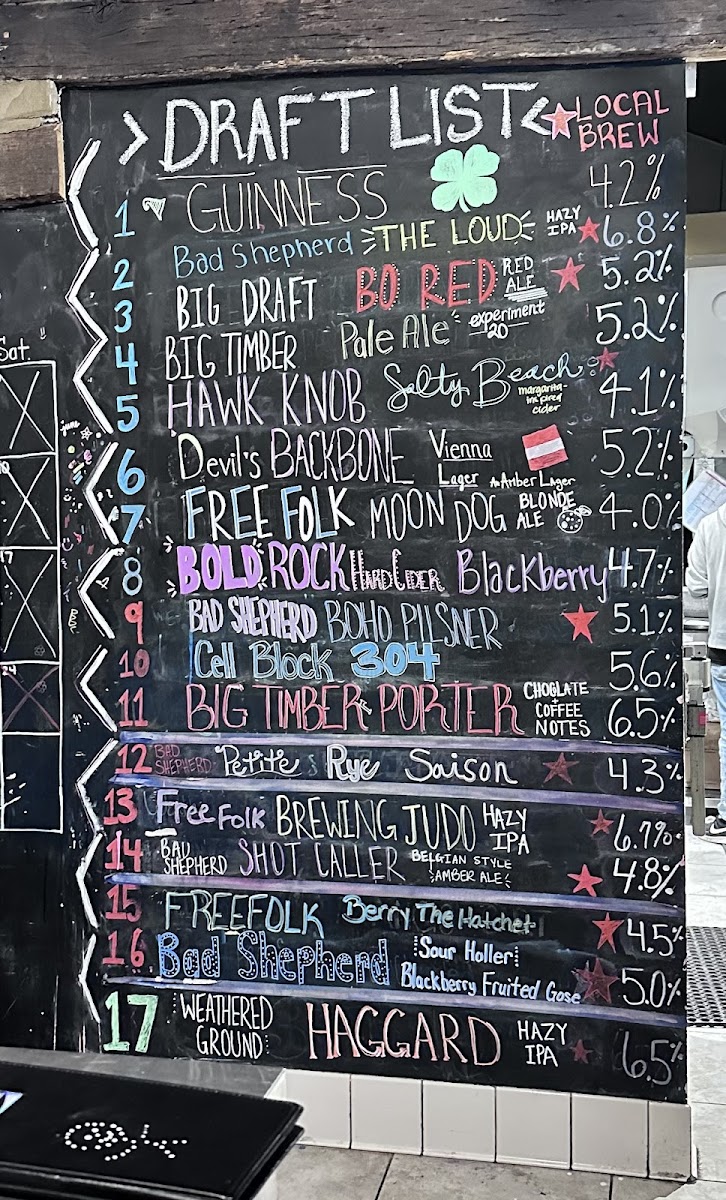 > DRAFT LIST < ★ LOCAL BREW
1 GUINNESS 4.2%
2 Bad Shepherd THE LOUD HAZY IPA ★ 6.8%
3 BIG DRAFT BO RED RED ALE ★ 5.2%
4 BIG TIMBER Pale Ale experiment 20 5.2%
5 HAWK KNOB Salty Beach margarita-inspired cider ★ 4.1%
6 Devil's BACKBONE Vienna Lager Amber Lager 5.2%
7 FREE FOLK MOON DOG BLONDE ALE 4.0%
8 BOLD ROCK HARD CIDER Blackberry 4.7%
9 BAD SHEPHERD BOHO PILSNER ★ 5.1%
10 Cell Block 304 5.6%
11 BIG TIMBER PORTER CHOCLATE + COFFEE NOTES 6.5%
12 BAD SHEPHERD Petite Rye Saison ★ 4.3%
13 Free Folk BREWING JUDO HAZY IPA ★ 6.7%
14 BAD SHEPHERD SHOT CALLER BELGIAN STYLE AMBER ALE ★ 4.8%
15 FREEFOLK Berry The Hatchet ★ 4.5%
16 Bad Shepherd Sour Holler Blackberry Fruited Gose ★ 5.0%
17 WEATHERED GROUND HAGGARD HAZY IPA ★ 6.5%
Sat.
17
24